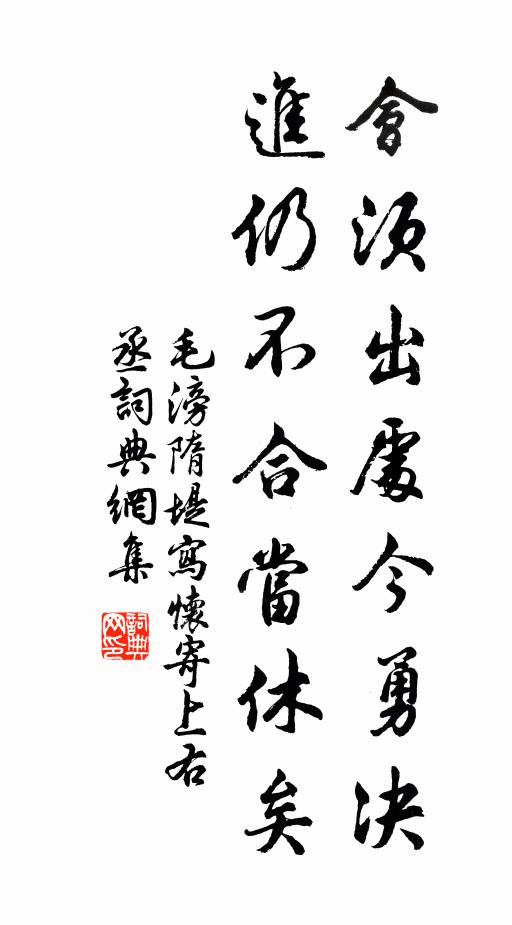 會須出處今勇決
進仍不合當休矣
毛滂隋堤寫懷寄上右
丞詞典網集
詞典
网印